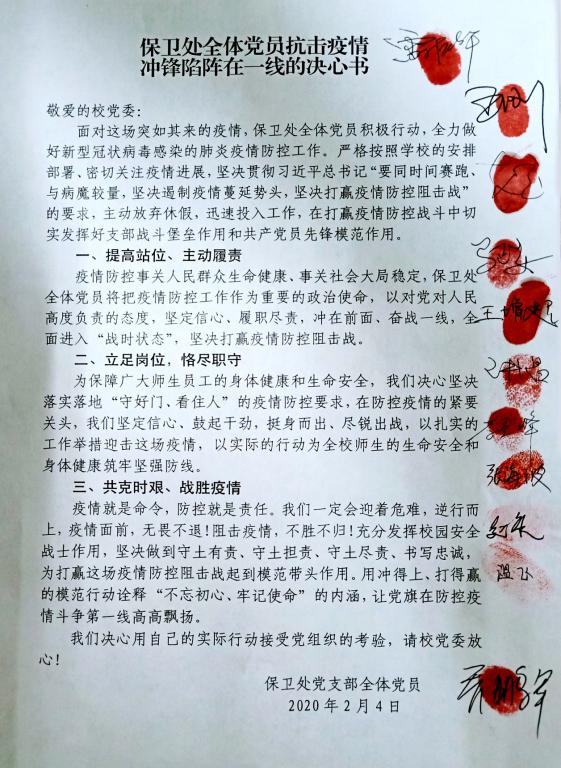 保卫处全体党员抗击疫情
冲锋陷阵在一线的决心书
敬爱的校党委:
面对这场突如其来的疫情,保卫处全体党员积极行动,全力做
好新型冠状病毒感染的肺炎疫情防控工作。严格按照学校的安排
部署、密切关注疫情进展,坚决贯彻习近平总书记“要同时间赛跑、
与病魔较量,坚决遏制疫情蔓延势头,坚决打赢疫情防控阻击战”
的要求,主动放弃休假,迅速投入工作,在打赢疫情防控战斗中切
实发挥好支部战斗堡垒作用和共产党员先锋模范作用。
一、提高站位、主动履责
疫情防控事关人民群众生命健康、事关社会大局稳定,保卫处
全体党员将把疫情防控工作作为重要的政治使命,以对党对人民
高度负责的态度,坚定信心、履职尽责,冲在前面、奋战一线,全
面进入“战时状态”,坚决打赢疫情防控阻击战。
二、立足岗位,恪尽职守
为保障广大师生员工的身体健康和生命安全,我们决心坚决
落实落地“守好门、看住人”的疫情防控要求,在防控疫情的紧要
关头,我们坚定信心、鼓起干劲,挺身而出、尽锐出战,以扎实的
工作举措迎击这场疫情,以实际的行动为全校师生的生命安全和
身体健康筑牢坚强防线。
三、共克时艰、战胜疫情
疫情就是命令,防控就是责任。我们一定会迎着危难,逆行而
上,疫情面前,无畏不退!阻击疫情,不胜不归!充分发挥校园安全
战士作用,坚决做到守土有责、守土担责、守土尽责、书写忠诚,
为打赢这场疫情防控阻击战起到模范带头作用。用冲得上、打得赢
的模范行动诠释“不忘初心、牢记使命”的内涵,让党旗在防控疫
情斗争第一线高高飘扬。
我们决心用自己的实际行动接受党组织的考验,请校党委放
心!
保卫处党支部全体党员
2020年2月4日
张海波
温飞